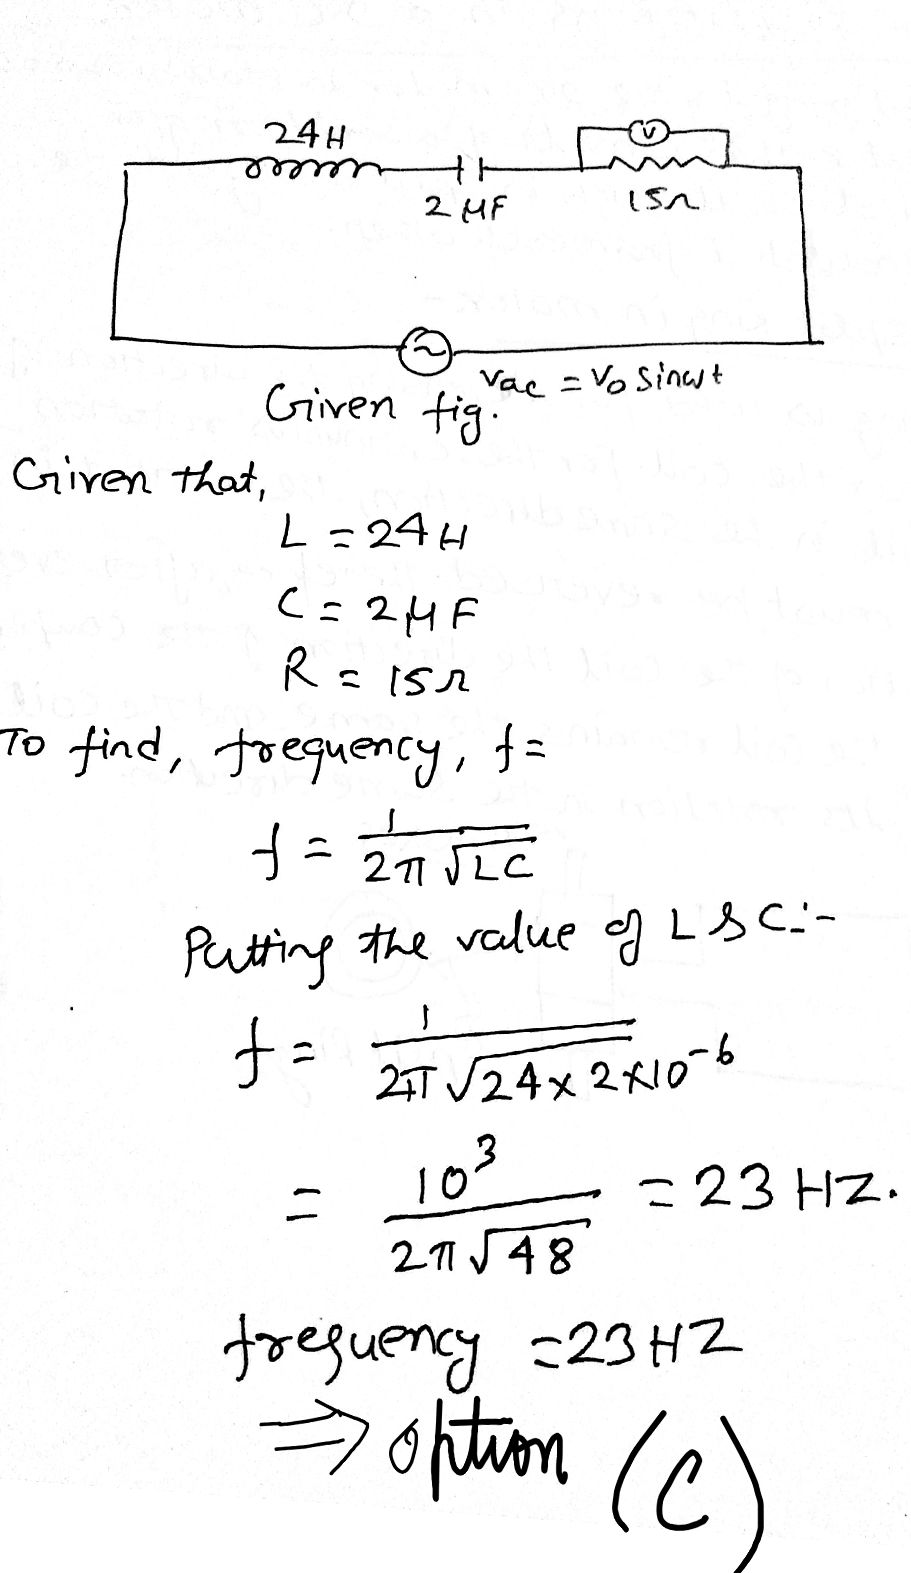 24H
V
2 μF
15Ω
Vac = V₀ sinωt
Given fig.
Given that,
L = 24H
C = 2μF
R = 15Ω
To find, frequency, f =
f = 1 / 2π √LC
Putting the value of L & C:-
f = 1 / 2π √24 × 2×10⁻⁶
= 10³ / 2π √48 = 23 HZ.
frequency = 23HZ
⇒ option (C)